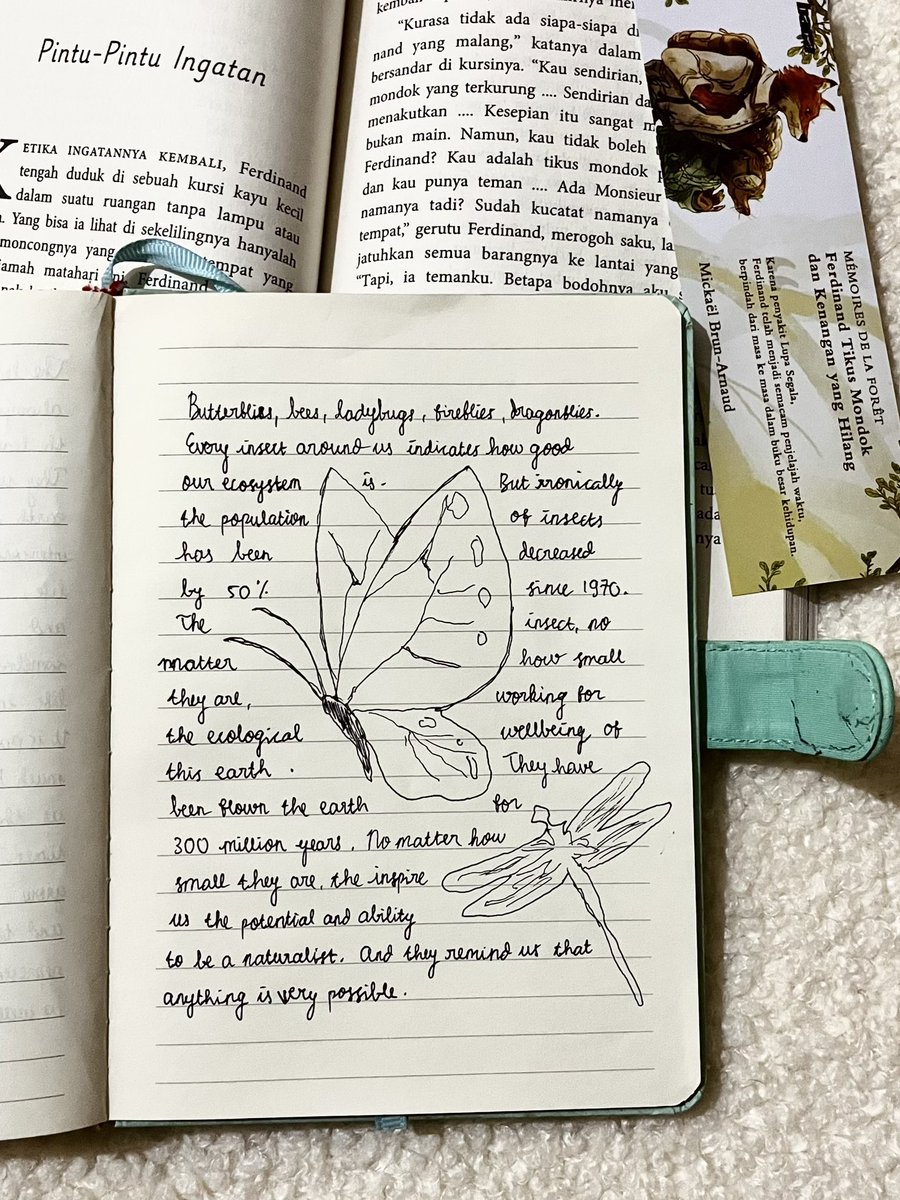 Pintu-Pintu Ingatan
KETIKA INGATANNYA KEMBALI, Ferdinand
tengah duduk di sebuah kursi kayu kecil
dalam suatu ruangan tanpa lampu atau
Yang bisa ia lihat di sekelilingnya hanyalah
moncongnya yang tempat yang
matahari ini, Ferdinand
“Kurasa tidak ada siapa-siapa di
nand yang malang,” katanya dalam
bersandar di kursinya. “Kau sendirian,
mondok yang terkurung .... Sendirian da
menakutkan .... Kesepian itu sangat m
bukan main. Namun, kau tidak boleh
Ferdinand? Kau adalah tikus mondok
dan kau punya teman .... Ada Monsieur
namanya tadi? Sudah kucatat namanya
tempat,” gerutu Ferdinand, merogoh saku, la
jatuhkan semua barangnya ke lantai yang
“Tapi, ia temanku. Betapa bodohnya aku
MÉMOIRES DE LA FORÊT
Ferdinand Tikus Mondok
dan Kenangan yang Hilang
Karena penyakit Lupa Segala,
Ferdinand telah menjadi semacam penjelajah waktu,
berpindah dari masa ke masa dalam buku besar kehidupan.
Mickaël Brun-Arnaud
Butterflies, bees, ladybugs, fireflies, dragonflies.
Every insect around us indicates how good
our ecosystem is. But ironically
the population of insects
has been decreased
by 50% since 1970.
The insect, no
matter how small
they are, working for
the ecological wellbeing of
this earth. They have
been flown the earth for
300 million years. No matter how
small they are, the inspire
us the potential and ability
to be a naturalist. And they remind us that
anything is very possible.